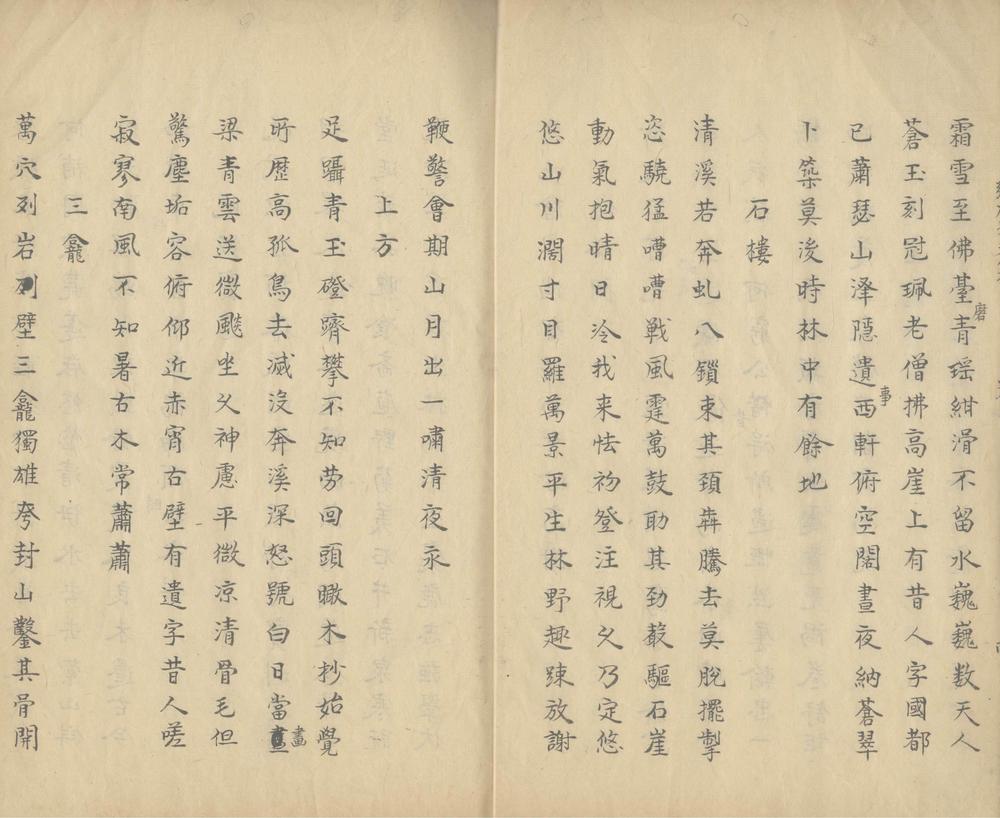 霜雪至佛䑓青瑶紺滑不留水巍巍数天人
磨
蒼玉刻冠珮老僧拂高崖上有昔人字國都
已蕭瑟山泽隱遺西軒俯空闊晝夜納蒼翠
事
卜築莫後時林中有餘地
石樓
清溪若奔虬八鎖束其頚犇騰去莫脫擺掣
恣驍猛嘈嘈戦風霆萬鼓助其勁薮驅石崖
動氣抱晴日冷我来怯初登注視久乃定悠
悠山川濶寸目羅萬景平生林野趣踈放謝
鞭警會期山月出一嘯清夜永
上方
足躡青玉磴躋攀不知劳回頭瞰木抄始覺
所歴高孤鳥去滅没奔溪深怒號白日當畫
畫
梁青雲送微飈坐久神慮平微凉清骨毛但
驚塵垢容俯仰近赤宵右壁有遺字昔人嗟
寂寥南風不知暑右木常蕭蕭
三龕
萬穴列岩列壁三龕獨雄夸封山鑿其骨開